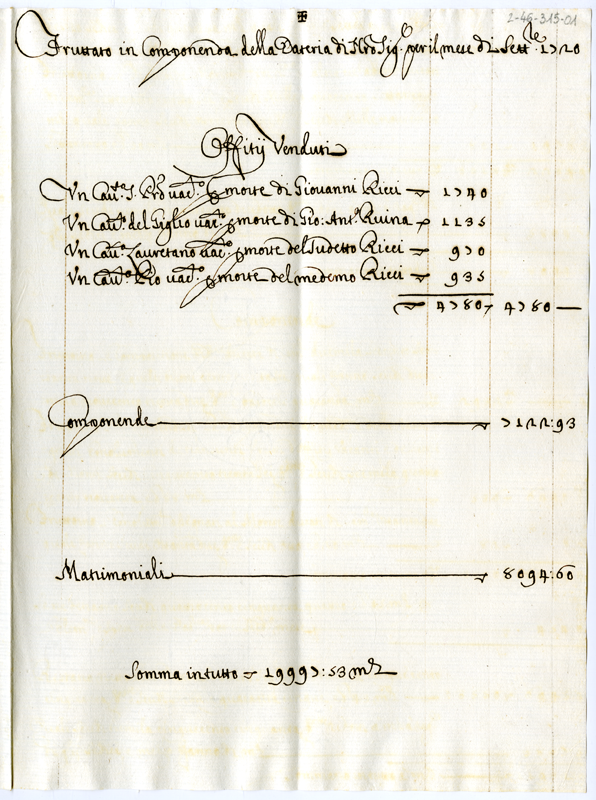 2-46-315-01
Fruttato in Componenda della Dateria di Nro Sig.re per il mese di Sett.re 1720
Offitij Venduti
Un Cav.to S. Pro vac.o p morte di Giovanni Ricci 1740
Un Cav.to del Giglio vac.o p morte di Gio: Ant.o Ruina 1135
Un Cav.to Lauretano vac.o p morte del sudetto Ricci 970
Un Cav.to Pio vac.o p morte del medemo Ricci 935
4780 4780 —
Componende 7122:93
Matrimoniali 8094:60
Somma in tutto 19997:53 mta